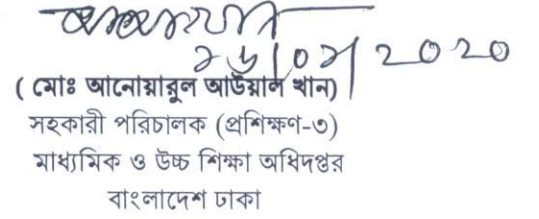 ২৬|০২|২০২০
( মোঃ আনোয়ারুল আউয়াল খান)
সহকারী পরিচালক (প্রশিক্ষণ-৩)
মাধ্যমিক ও উচ্চ শিক্ষা অধিদপ্তর
বাংলাদেশ ঢাকা